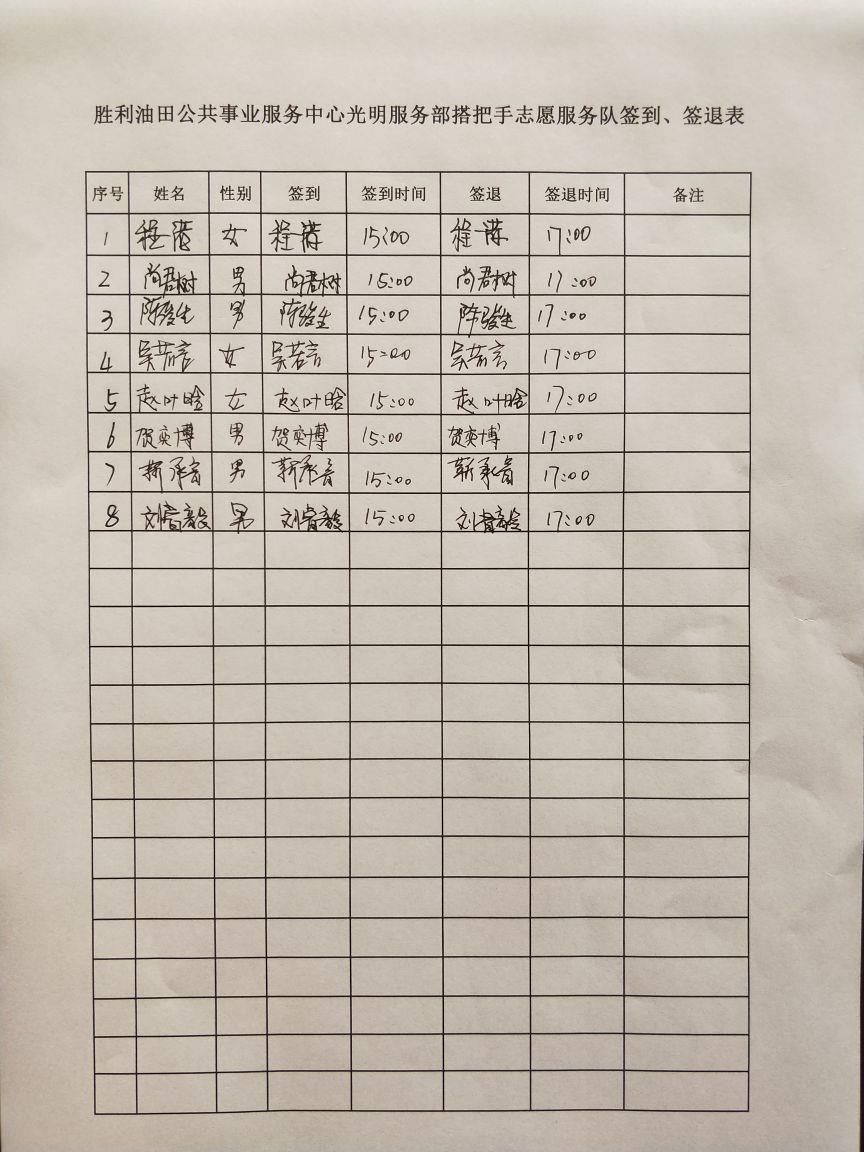 胜利油田公共事业服务中心光明服务部搭把手志愿服务队签到、签退表
序号 姓名 性别 签到 签到时间 签退 签退时间 备注
1 程 女 程 15:00 程 17:00
2 尚君树 男 尚君树 15:00 尚君树 17:00
3 陈骏生 男 陈骏生 15:00 陈骏生 17:00
4 吴若言 女 吴若言 15:00 吴若言 17:00
5 赵叶晗 女 赵叶晗 15:00 赵叶晗 17:00
6 贺奕博 男 贺奕博 15:00 贺奕博 17:00
7 靳承音 男 靳承音 15:00 靳承音 17:00
8 刘睿毅 男 刘睿毅 15:00 刘睿毅 17:00